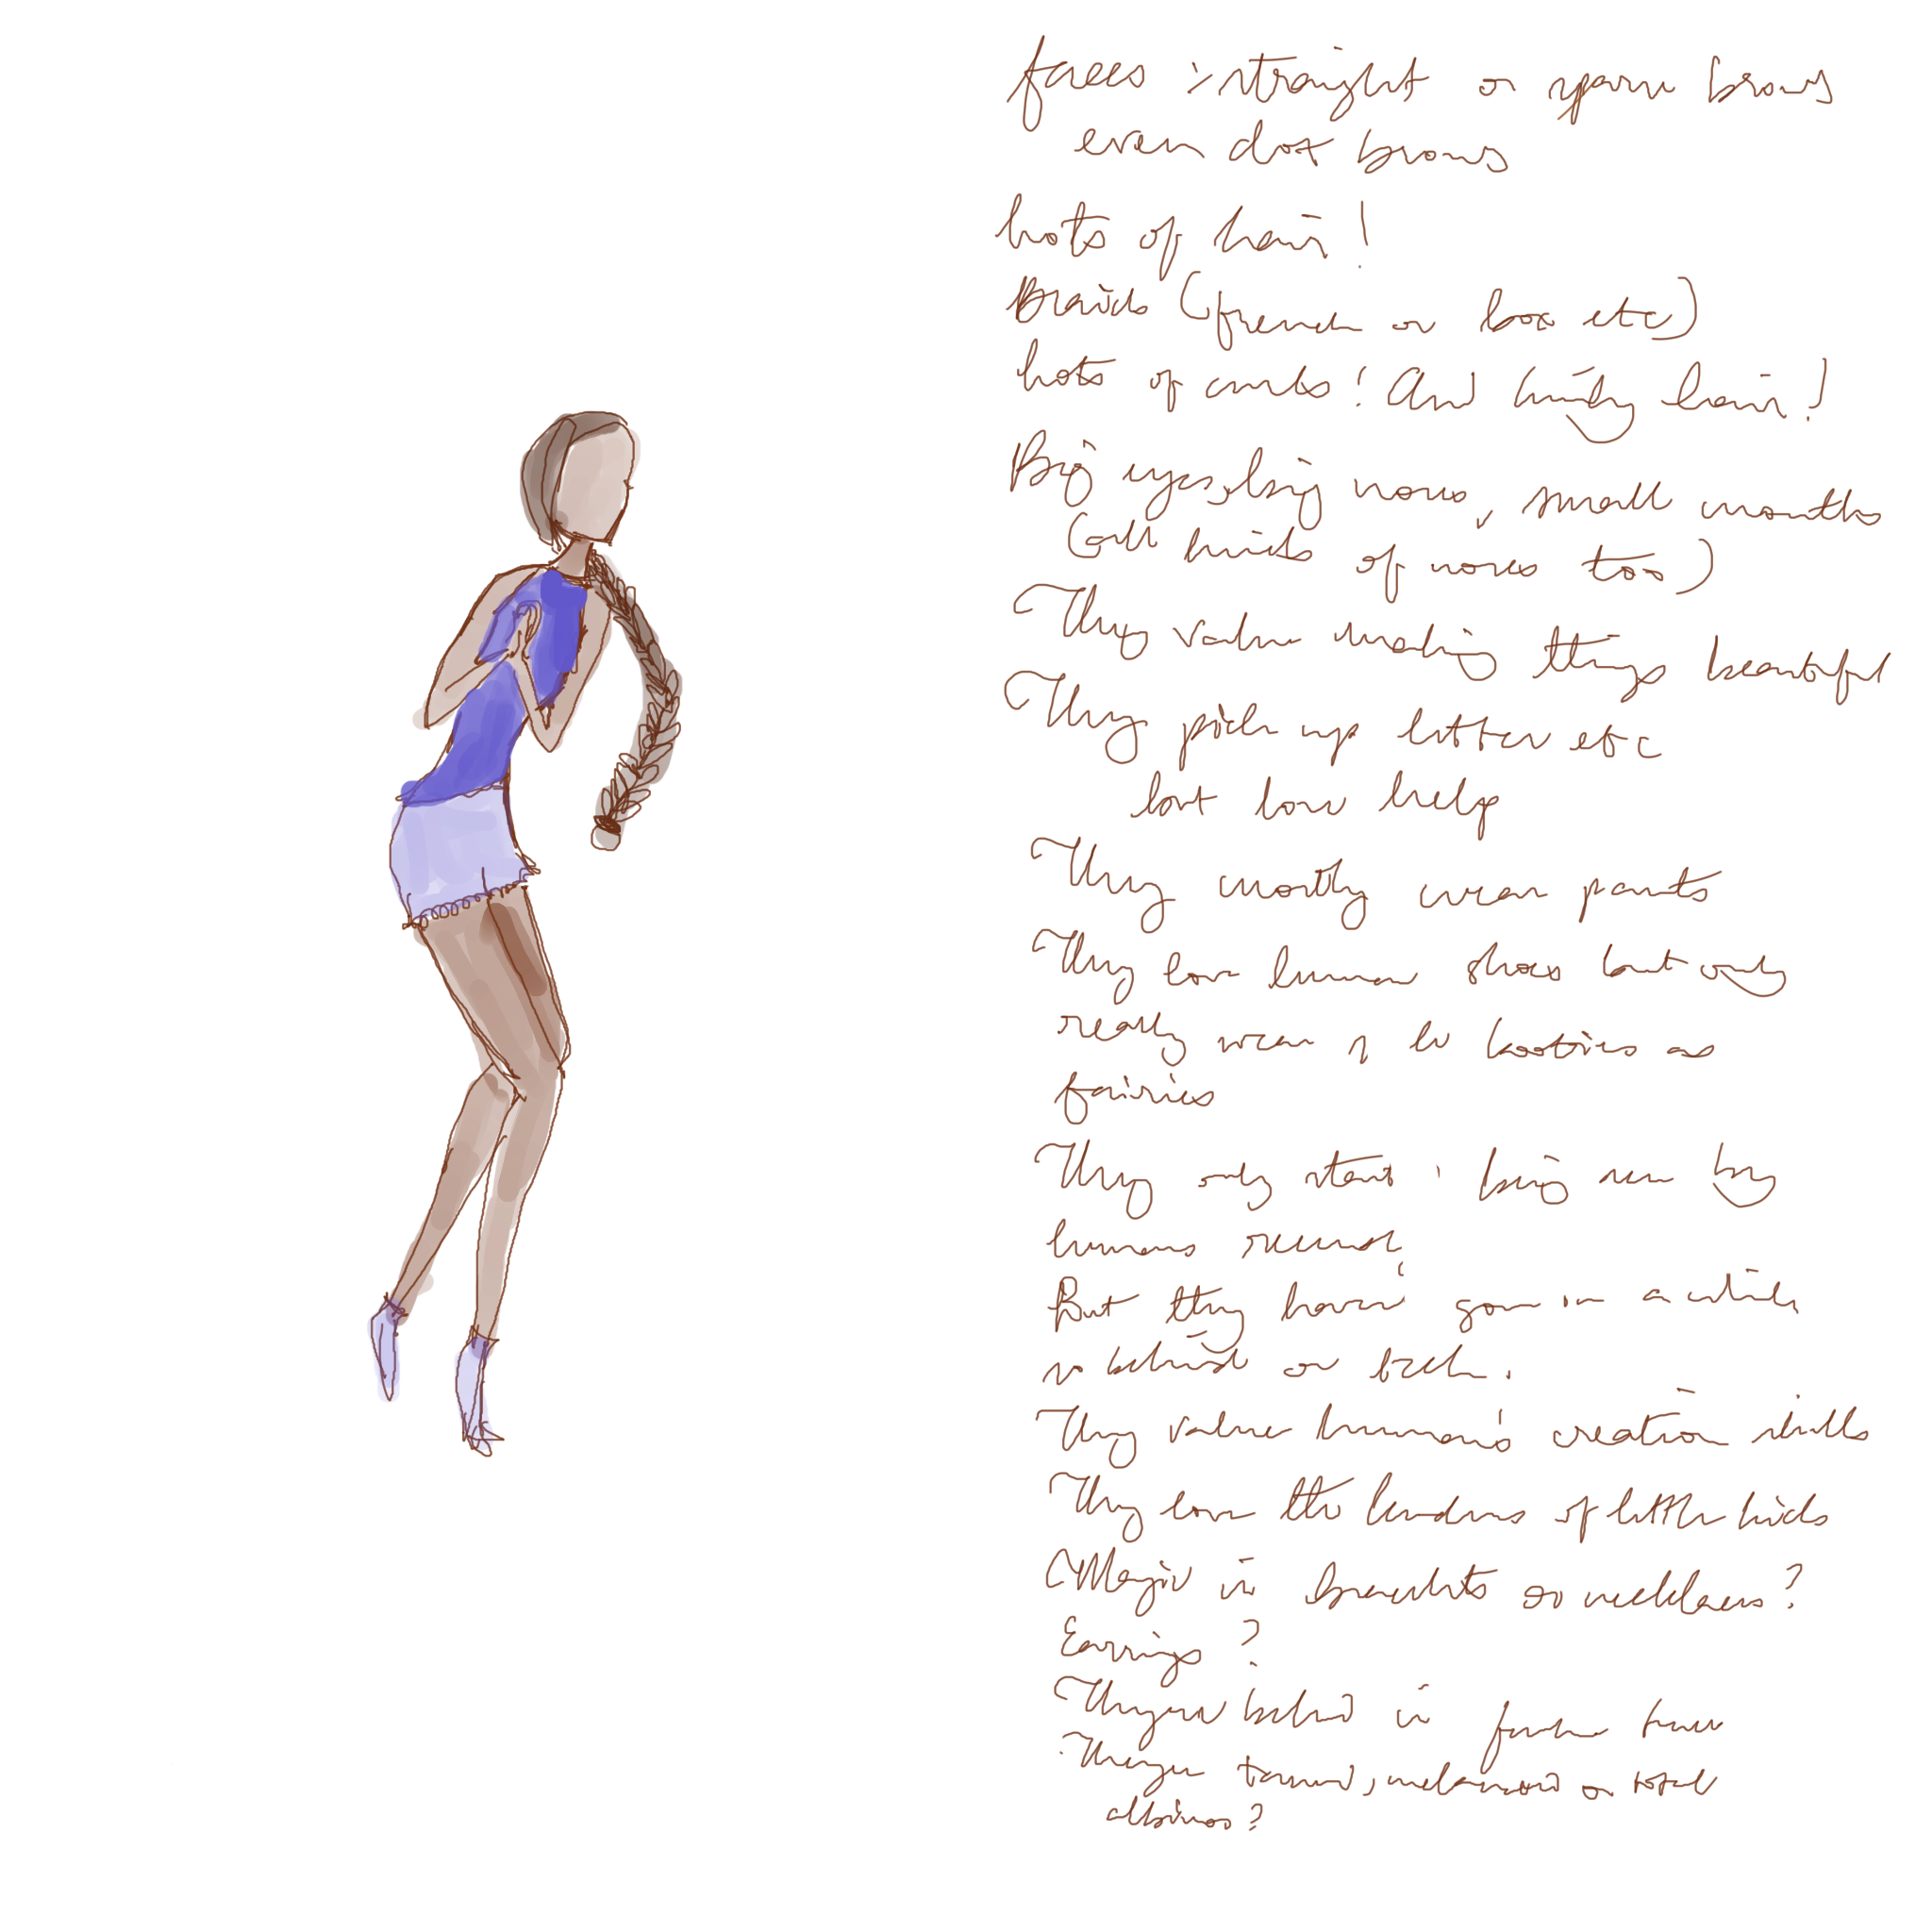 faces : straight or sparse brows
even dot brows
Lots of hair!
Braids (french or box etc)
Lots of curls! And kinky hair!
Big eyes, big noses, small mouths
(all kinds of noses too)
They value making things beautiful
They pick up litter etc
but love help
They mostly wear pants
They love human shoes but only
really wear booties as
fairies
They only start being seen by
humans
But they haven' gone in a while
so behind on tech.
They value human's creation skills
They love the kindness of little kids
Magic in bracelets or necklaces?
Earrings?
They're behind in
They're tanned, melanated or total
albinos?